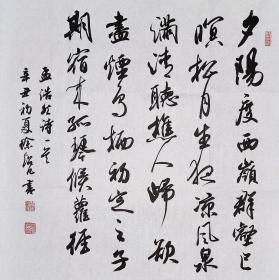 夕陽度西嶺群壑已
暝松月生夜涼風泉
滿清聽樵人歸欲
盡煙鳥栖初定之子
期宿來孤琴候蘿徑
孟浩然詩一首
辛丑初夏徐
書